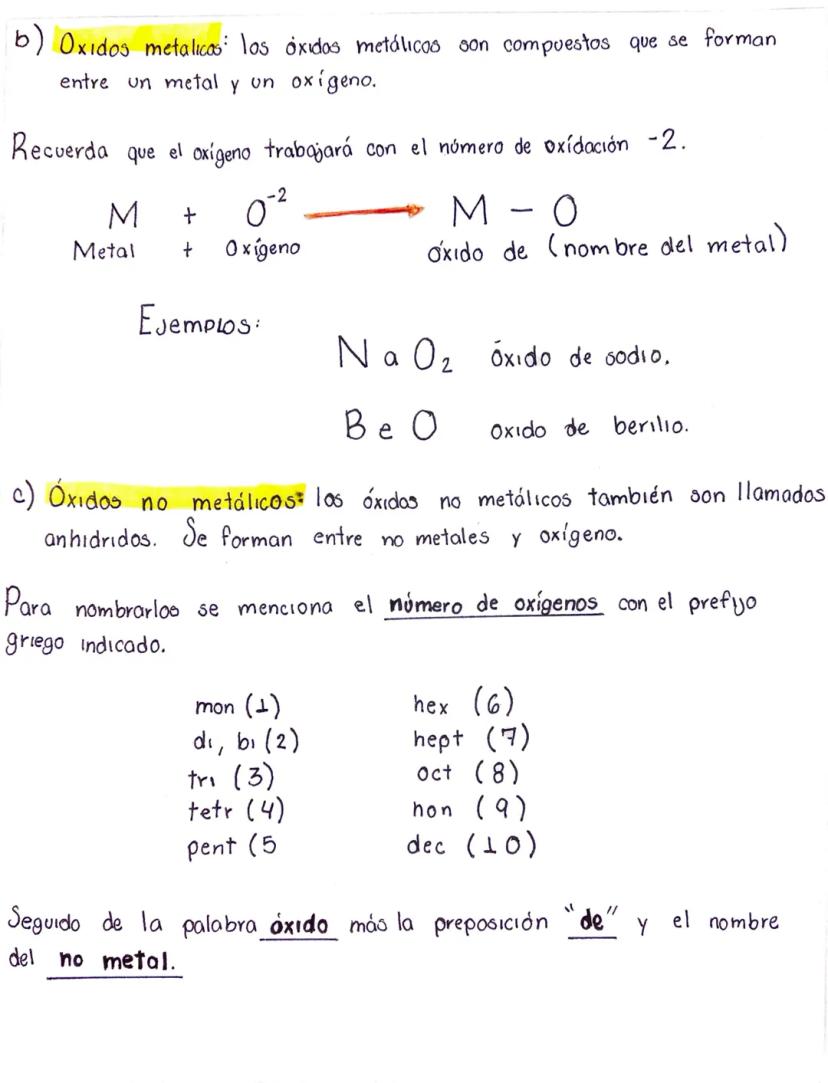 b) Oxidos metalicos: los óxidos metálicos son compuestos que se forman
entre un metal y un oxígeno.
Recuerda que el oxígeno trabajará con el número de oxídación -2.
M + O⁻² → M - O
Metal + Oxígeno óxido de (nombre del metal)
Ejemplos:
NaO₂ óxido de sodio.
BeO oxido de berilio.
c) Óxidos no metálicos: los óxidos no metálicos también son llamados
anhidridos. Se forman entre no metales y oxígeno.
Para nombrarlos se menciona el número de oxígenos con el prefijo
griego indicado.
mon (1) hex (6)
di, bi (2) hept (7)
tri (3) oct (8)
tetr (4) non (9)
pent (5 dec (10)
Seguido de la palabra óxido más la preposición "de" y el nombre
del no metal.